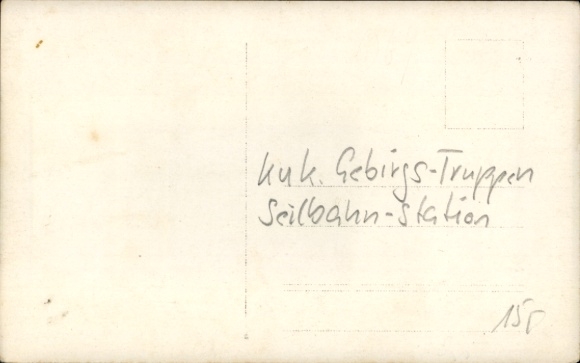 kuk. Gebirgs-Truppen
Seilbahn-Station